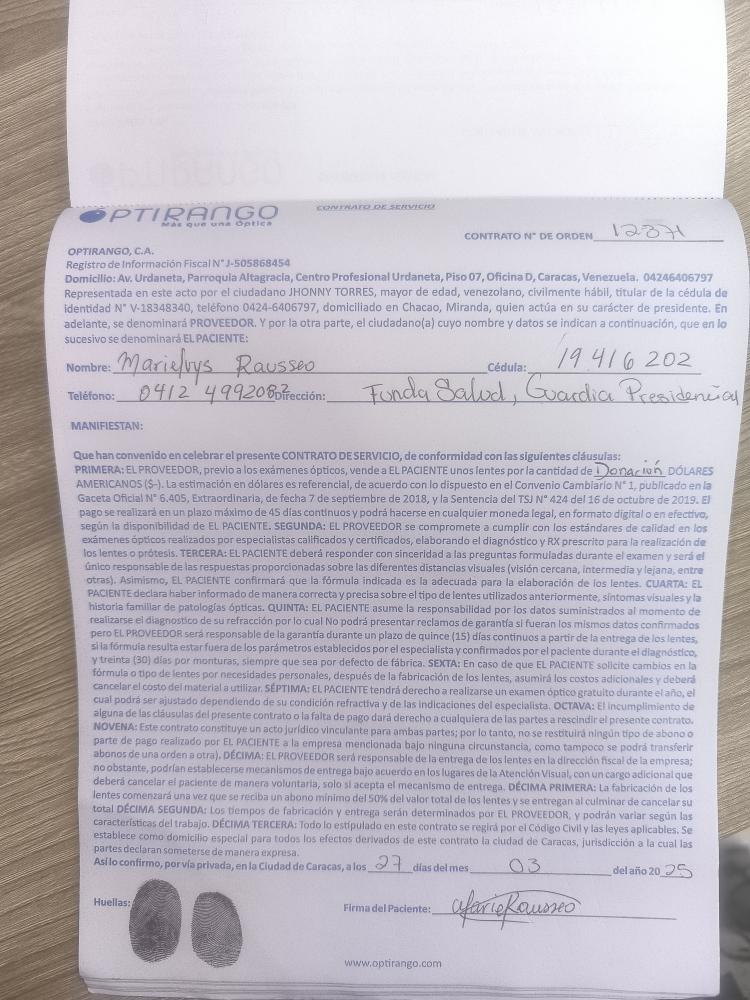 OPTIRANGO
Más que una Óptica
CONTRATO DE SERVICIO
CONTRATO N° DE ORDEN 12371
OPTIRANGO, C.A.
Registro de Información Fiscal N° J-505868454
Domicilio: Av. Urdaneta, Parroquia Altagracia, Centro Profesional Urdaneta, Piso 07, Oficina D, Caracas, Venezuela. 04246406797
Representada en este acto por el ciudadano JHONNY TORRES, mayor de edad, venezolano, civilmente hábil, titular de la cédula de
identidad N° V-18348340, teléfono 0424-6406797, domiciliado en Chacao, Miranda, quien actúa en su carácter de presidente. En
adelante, se denominará PROVEEDOR. Y por la otra parte, el ciudadano(a) cuyo nombre y datos se indican a continuación, que en lo
sucesivo se denominará EL PACIENTE:
Nombre: Marielvys Rausseo Cédula: 19.416 202
Teléfono: 0412 4992082 Dirección: Funda Salud, Guardia Presidencial
MANIFIESTAN:
Que han convenido en celebrar el presente CONTRATO DE SERVICIO, de conformidad con las siguientes cláusulas:
PRIMERA: EL PROVEEDOR, previo a los exámenes ópticos, vende a EL PACIENTE unos lentes por la cantidad de Donación DÓLARES
AMERICANOS ($-). La estimación en dólares es referencial, de acuerdo con lo dispuesto en el Convenio Cambiario N° 1, publicado en la
Gaceta Oficial N° 6.405, Extraordinaria, de fecha 7 de septiembre de 2018, y la Sentencia del TSJ N° 424 del 16 de octubre de 2019. El
pago se realizará en un plazo máximo de 45 días continuos y podrá hacerse en cualquier moneda legal, en formato digital o en efectivo,
según la disponibilidad de EL PACIENTE. SEGUNDA: EL PROVEEDOR se compromete a cumplir con los estándares de calidad en los
exámenes ópticos realizados por especialistas calificados y certificados, elaborando el diagnóstico y RX prescrito para la realización de
los lentes o prótesis. TERCERA: EL PACIENTE deberá responder con sinceridad a las preguntas formuladas durante el examen y será el
único responsable de las respuestas proporcionadas sobre las diferentes distancias visuales (visión cercana, intermedia y lejana, entre
otras). Asimismo, EL PACIENTE confirmará que la fórmula indicada es la adecuada para la elaboración de los lentes. CUARTA: EL
PACIENTE declara haber informado de manera correcta y precisa sobre el tipo de lentes utilizados anteriormente, síntomas visuales y la
historia familiar de patologías ópticas. QUINTA: EL PACIENTE asume la responsabilidad por los datos suministrados al momento de
realizarse el diagnostico de su refracción por lo cual No podrá presentar reclamos de garantía si fueran los mismos datos confirmados
pero EL PROVEEDOR será responsable de la garantía durante un plazo de quince (15) días continuos a partir de la entrega de los lentes,
si la fórmula resulta estar fuera de los parámetros establecidos por el especialista y confirmados por el paciente durante el diagnóstico,
y treinta (30) días por monturas, siempre que sea por defecto de fábrica. SEXTA: En caso de que EL PACIENTE solicite cambios en la
fórmula o tipo de lentes por necesidades personales, después de la fabricación de los lentes, asumirá los costos adicionales y deberá
cancelar el costo del material a utilizar. SÉPTIMA: EL PACIENTE tendrá derecho a realizarse un examen óptico gratuito durante el año, el
cual podrá ser ajustado dependiendo de su condición refractiva y de las indicaciones del especialista. OCTAVA: El incumplimiento de
alguna de las cláusulas del presente contrato o la falta de pago dará derecho a cualquiera de las partes a rescindir el presente contrato.
NOVENA: Este contrato constituye un acto jurídico vinculante para ambas partes; por lo tanto, no se restituirá ningún tipo de abono o
parte de pago realizado por EL PACIENTE a la empresa mencionada bajo ninguna circunstancia, como tampoco se podrá transferir
abonos de una orden a otra). DÉCIMA: EL PROVEEDOR será responsable de la entrega de los lentes en la dirección fiscal de la empresa;
no obstante, podrían establecerse mecanismos de entrega bajo acuerdo en los lugares de la Atención Visual, con un cargo adicional que
deberá cancelar el paciente de manera voluntaria, solo si acepta el mecanismo de entrega. DÉCIMA PRIMERA: La fabricación de los
lentes comenzará una vez que se reciba un abono mínimo del 50% del valor total de los lentes y se entregan al culminar de cancelar su
total DÉCIMA SEGUNDA: Los tiempos de fabricación y entrega serán determinados por EL PROVEEDOR, y podrán variar según las
características del trabajo. DÉCIMA TERCERA: Todo lo estipulado en este contrato se regirá por el Código Civil y las leyes aplicables. Se
establece como domicilio especial para todos los efectos derivados de este contrato la ciudad de Caracas, jurisdicción a la cual las
partes declaran someterse de manera expresa.
Así lo confirmo, por vía privada, en la Ciudad de Caracas, a los 27 días del mes 03 del año 2025
Huellas: Firma del Paciente: MarieRausseo
www.optirango.com